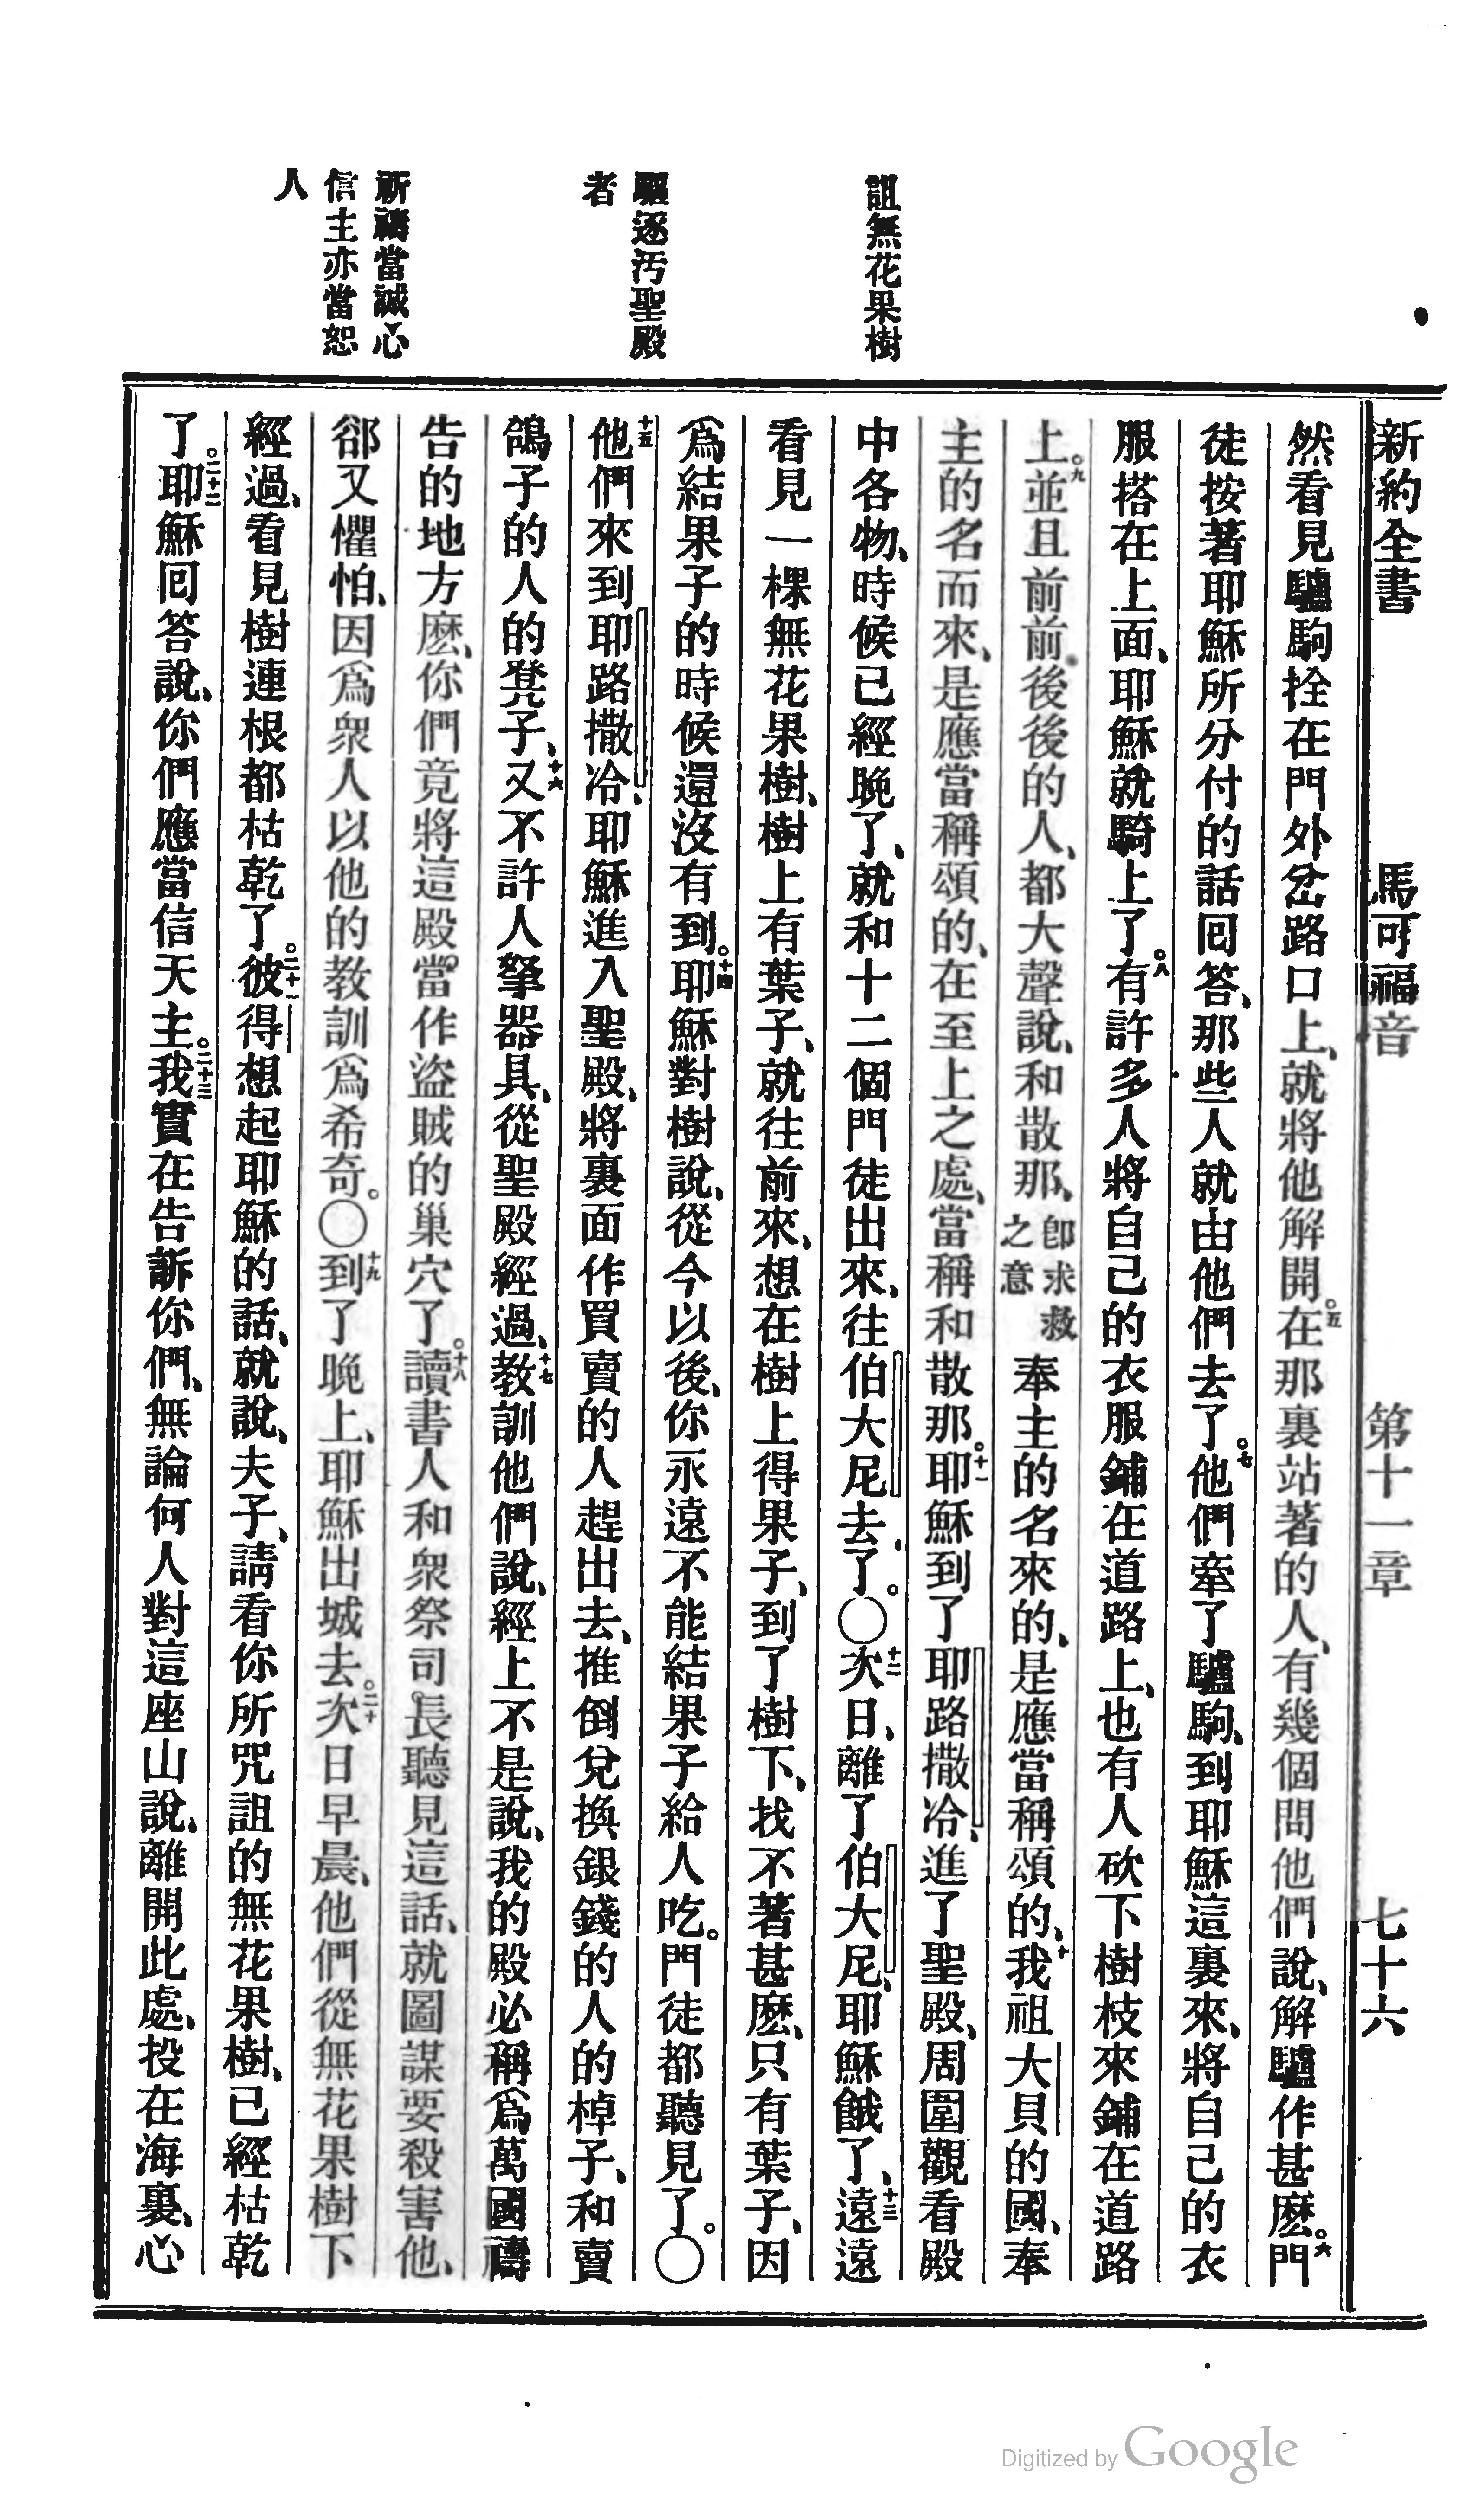 新約全書 馬可福音 第十一章 七十六
詛無花果樹
驅逐汚聖殿
者
祈禱當誠心
信主亦當恕
人
然看見驢駒拴在門外岔路口上、就將他解開。五在那裏站著的人、有幾個問他們說、解驢作甚麽。六門
徒按著耶穌所分付的話回答、那些人就由他們去了。七他們牽了驢駒、到耶穌這裏來、將自己的衣
服搭在上面、耶穌就騎上了。八有許多人將自己的衣服鋪在道路上、也有人砍下樹枝來鋪在道路
上。九並且前前後後的人、都大聲說、和散那、卽求救之意奉主的名來的、是應當稱頌的、十我祖大貝的國、奉
主的名而來、是應當稱頌的、在至上之處、當稱和散那。十一耶穌到了耶路撒冷、進了聖殿、周圍觀看殿
中各物、時候已經晚了、就和十二個門徒出來、往伯大尼去了。〇十二次日、離了伯大尼、耶穌餓了、十三遠遠
看見一棵無花果樹、樹上有葉子、就往前來、想在樹上得果子、到了樹下、找不著甚麽、只有葉子、因
爲結果子的時候還沒有到。十四耶穌對樹說、從今以後、你永遠不能結果子給人吃。門徒都聽見了。〇
十五他們來到耶路撒冷、耶穌進入聖殿、將裏面作買賣的人趕出去、推倒兌換銀錢的人的棹子、和賣
鴿子的人的凳子、十六又不許人拏器具、從聖殿經過、十七教訓他們說、經上不是說、我的殿必稱爲萬國禱
告的地方麽、你們竟將這殿當作盜賊的巢穴了。十八讀書人和衆祭司長聽見這話、就圖謀要殺害他、
郤又懼怕、因爲衆人以他的教訓爲希奇。〇十九到了晚上、耶穌出城去。二十次日早晨、他們從無花果樹下
經過、看見樹連根都枯乾了。二十一彼得想起耶穌的話、就說、夫子、請看你所咒詛的無花果樹、已經枯乾
了。二十二耶穌回答說、你們應當信天主。二十三我實在告訴你們、無論何人對這座山說、離開此處、投在海裏、心
Digitized by Google